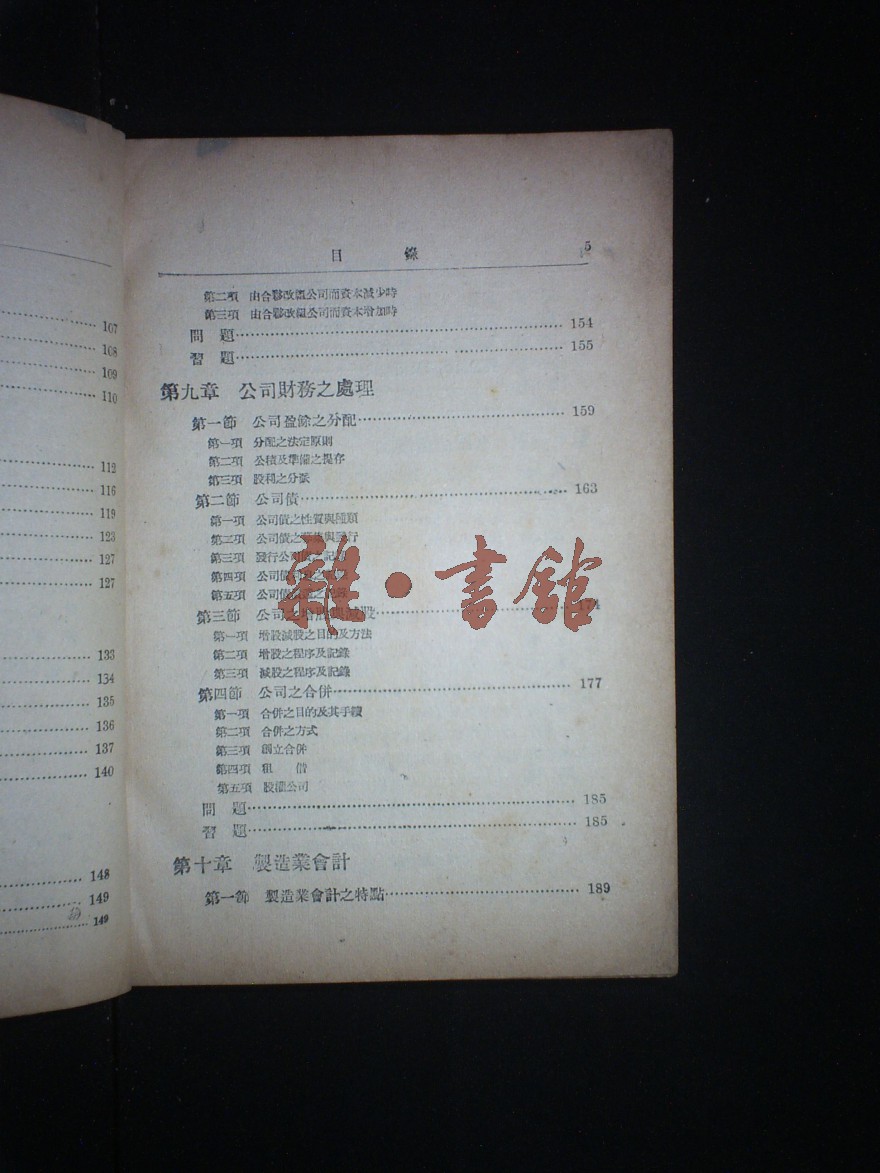 107
108
109
110
112
116
119
123
127
127
133
134
135
136
137
140
148
149
149
目 錄 5
第二項 由合夥改組公司而資本減少時
第三項 由合夥改組公司而資本增加時
問 題 154
習 題 155
第九章 公司財務之處理
第一節 公司盈餘之分配 159
第一項 分配之法定原則
第二項 公積及準備之提存
第三項 股利之分派
第二節 公司債 163
第一項 公司債之性質與種類
第二項 公司債之 與 行
第三項 發行公司債之記
第四項 公司債
第五項 公司債
第三節 公司之增股與減股 174
第一項 增股減股之目的及方法
第二項 增股之程序及記錄
第三項 減股之程序及記錄
第四節 公司之合併 177
第一項 合併之目的及其手續
第二項 合併之方式
第三項 創立合併
第四項 租 借
第五項 股權公司
問 題 185
習 題 185
第十章 製造業會計
第一節 製造業會計之特點 189
雜·書館